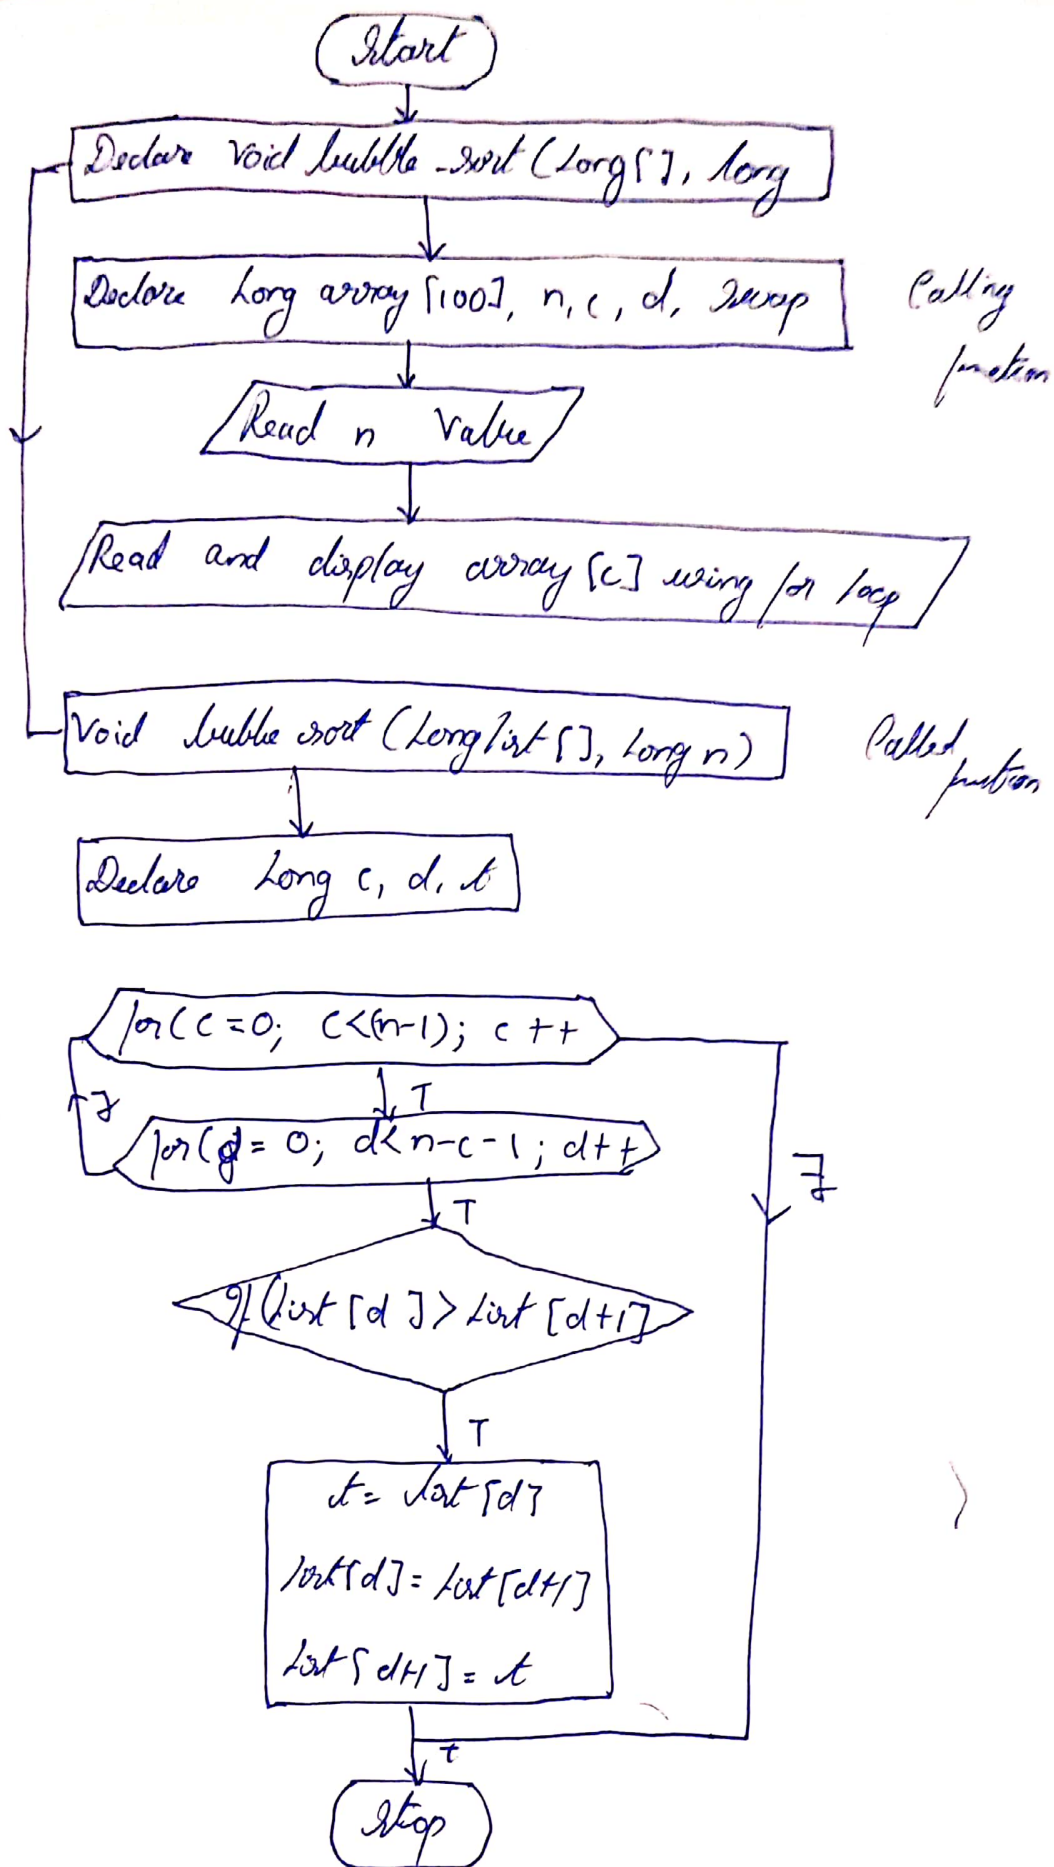 Start
Declare Void bubble-sort (Long[], long
Declare Long array [100], n, c, d, Swap
Calling
function
Read n Value
Read and display array [c] using for loop
Void bubble sort (Long list [], Long n)
Called
function
Declare Long c, d, t
for(c=0; c<(n-1); c++
T
F
for(d=0; d<n-c-1; d++
F
T
If (List [d] > List [d+1]
T
t = list [d]
list[d] = List [d+1]
List [d+1] = t
t
Stop